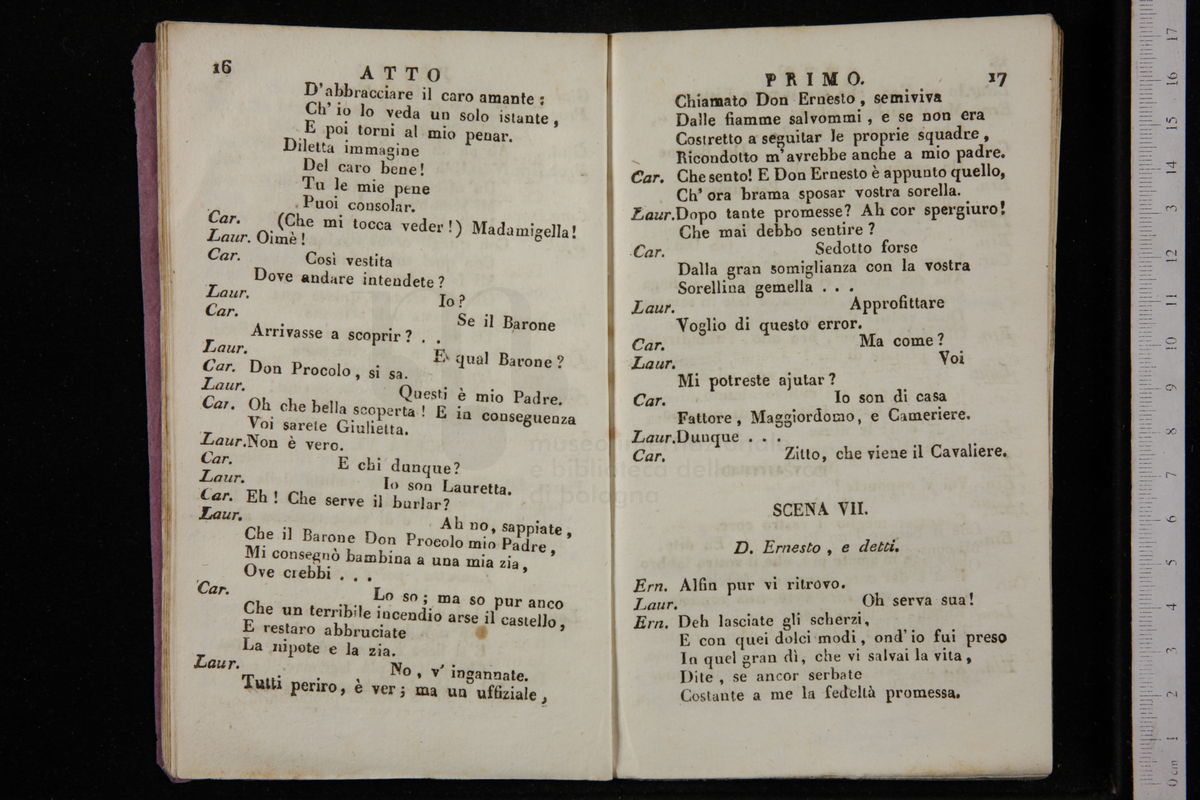 16
ATTO
D'abbracciare il caro amante;
Ch' io lo veda un solo istante,
E poi torni al mio penar.
Diletta immagine
Del caro bene!
Tu le mie pene
Puoi consolar.
Car. (Che mi tocca veder!) Madamigella!
Laur. Oimè!
Car. Così vestita
Dove andare intendete?
Laur. Io?
Car. Se il Barone
Arrivasse a scoprir? . .
Laur. E qual Barone?
Car. Don Procolo, si sa.
Laur. Questi è mio Padre.
Car. Oh che bella scoperta! E in conseguenza
Voi sarete Giulietta.
Laur. Non è vero.
Car. E chi dunque?
Laur. Io son Lauretta.
Car. Eh! Che serve il burlar?
Laur. Ah no, sappiate,
Che il Barone Don Procolo mio Padre,
Mi consegnò bambina a una mia zia,
Ove crebbi . . .
Car. Lo so; ma so pur anco
Che un terribile incendio arse il castello,
E restaro abbruciate
La nipote e la zia.
Laur. No, v' ingannate.
Tutti periro, è ver; ma un uffiziale,
PRIMO.
17
Chiamato Don Ernesto, semiviva
Dalle fiamme salvommi, e se non era
Costretto a seguitar le proprie squadre,
Ricondotto m'avrebbe anche a mio padre.
Car. Che sento! E Don Ernesto è appunto quello,
Ch' ora brama sposar vostra sorella.
Laur. Dopo tante promesse? Ah cor spergiuro!
Che mai debbo sentire?
Car. Sedotto forse
Dalla gran somiglianza con la vostra
Sorellina gemella . . .
Laur. Approfittare
Voglio di questo error.
Car. Ma come?
Laur. Voi
Mi potreste ajutar?
Car. Io son di casa
Fattore, Maggiordomo, e Cameriere.
Laur. Dunque . . .
Car. Zitto, che viene il Cavaliere.
SCENA VII.
D. Ernesto, e detti.
Ern. Alfin pur vi ritrovo.
Laur. Oh serva sua!
Ern. Deh lasciate gli scherzi,
E con quei dolci modi, ond' io fui preso
In quel gran dì, che vi salvai la vita,
Dite, se ancor serbate
Costante a me la fedeltà promessa.
museo internazionale
e biblioteca della musica
di bologna
0 cm 1 2 3 4 5 6 7 8 9 10 11 12 13 14 15 16 17